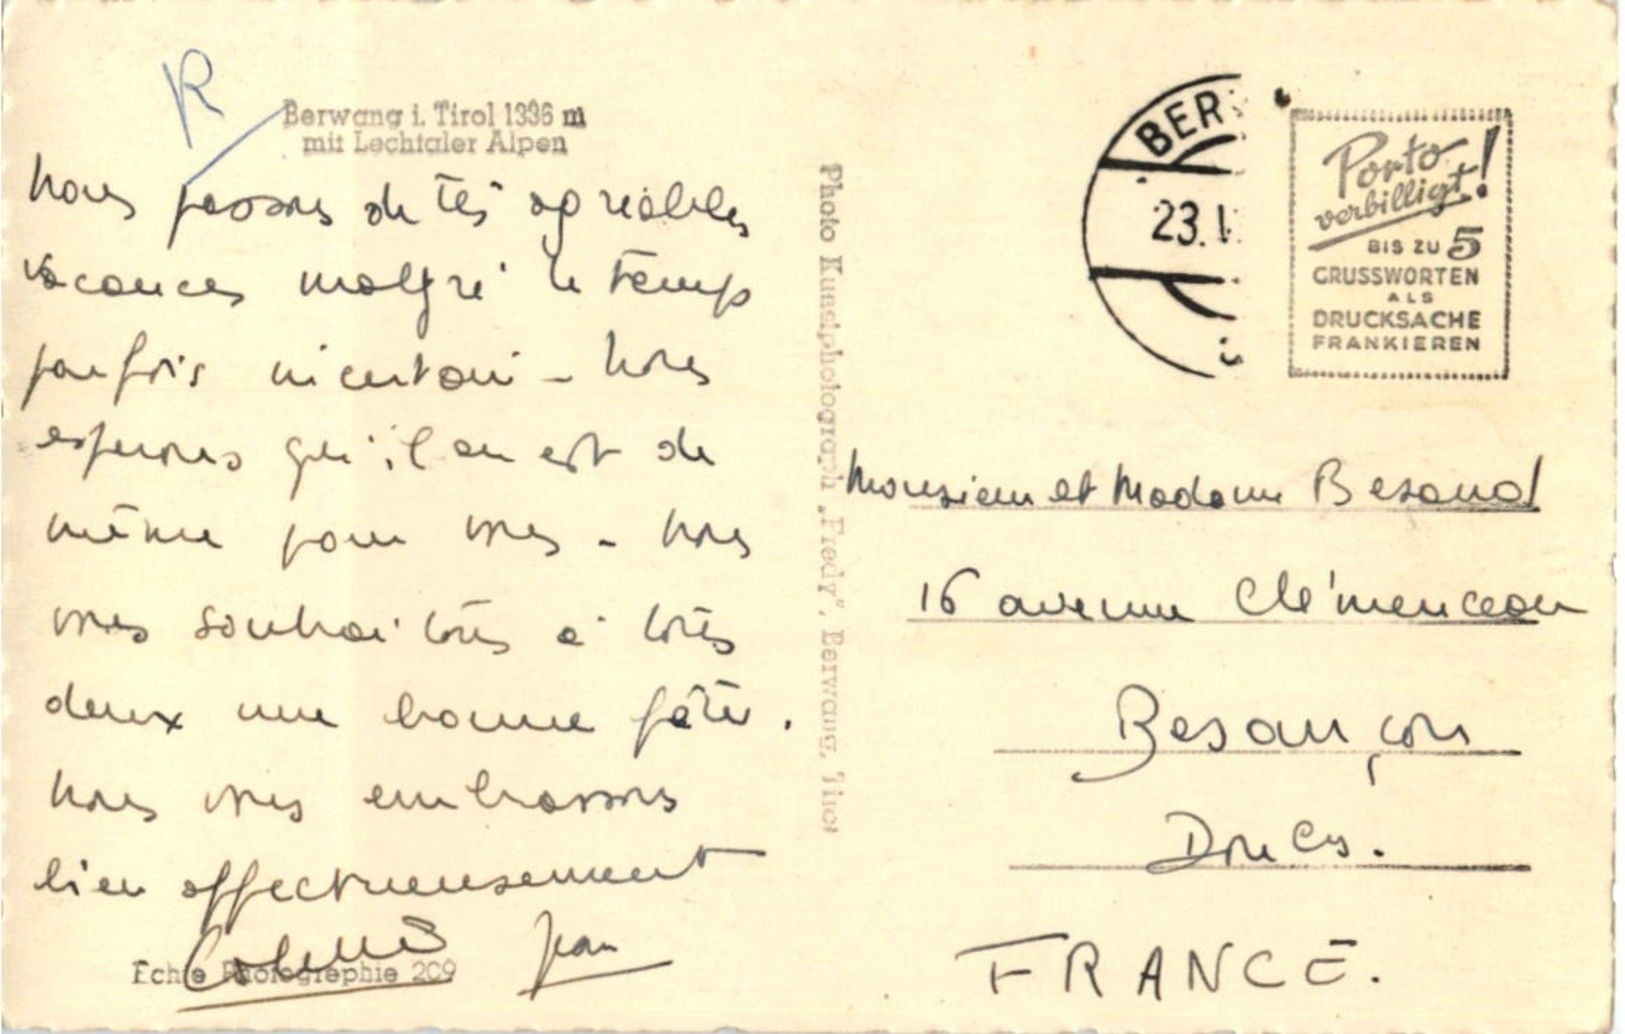 R
Berwang i. Tirol 1336 m
mit Lechtaler Alpen
Nous passons de très agréables
vacances malgré le temps
parfois incertain - Nous
espérons qu'il en est de
même pour vous - Nous
vous souhaitons à tous
deux une bonne fête.
Nous vous embrassons
bien affectueusement
Colette Jean
Echte Photographie 209
Photo Kunstphotograph „Fredy", Berwang, Tirol
BER
23.I
Porto
verbilligt!
BIS ZU 5
GRUSSWORTEN
ALS
DRUCKSACHE
FRANKIEREN
Monsieur et Madame Besand
16 avenue Clémenceau
Besançon
Doubs.
FRANCE.